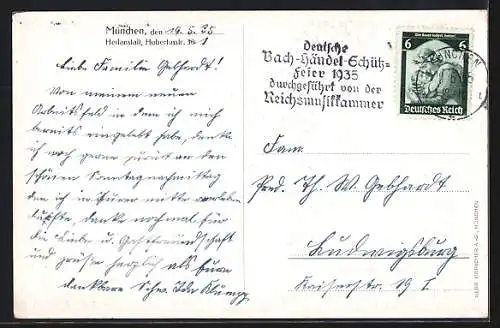 München, den 19.5.35
Herlenstalt, Hubertusstr. 16 I
Liebe Familie Gebhardt!
Von meinem neuen
Arbeitsfeld in dem ich mich
bereits eingelebt habe, denke
ich noch gerne zurück an den
schönen Sonntagnachmittag
den ich in Eurer Mitte verleben
durfte, danke nochmal für
die Liebe u. Gastfreundschaft
und grüße herzlich als Eure
dankbare Schw. Ida Klumpp
Deutsche
Bach-Händel-Schütz-
Feier 1935
durchgeführt von der
Reichsmusikkammer
6 6
Deutsches Reich
MÜNCHEN
Fam.
Pred. Th. W. Gebhardt
Ludwigsburg
Kaiserstr. 19 I.